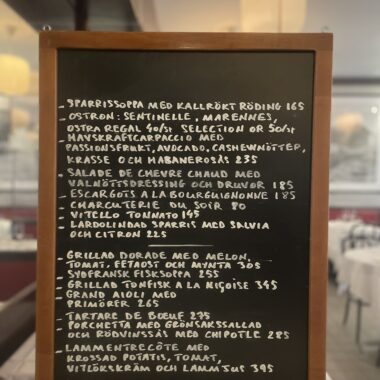 - SPARRISSOPPA MED KALLRÖKT RÖDING 165
- OSTRON: SENTINELLE, MARENNES,
OSTRA REGAL 40/st SELECTION OR 50/st
HAVSKRAFTCARPACCIO MED
PASSIONSFRUKT, AVOCADO, CASHEWNÖTTER,
KRASSE OCH HABANEROSÅS 235
- SALADE DE CHEVRE CHAUD MED
VALNÖTTSDRESSING OCH DRUVOR 185
- ESCARGOTS A LA BOURGUIGNONNE 185
- CHARCUTERIE DU SOIR 80
- VITELLO TONNATO 145
- LARDOLINDAD SPARRIS MED SALVIA
OCH CITRON 225
- GRILLAD DORADE MED MELON,
TOMAT, FETAOST OCH MYNTA 305
- SYDFRANSK FISKSOPPA 255
- GRILLAD TONFISK A LA NIÇOISE 345
- GRAND AIOLI MED
PRIMÖRER 265
- TARTARE DE BŒUF 235
- PORCHETTA MED GRÖNSAKSSALLAD
OCH RÖDVINSSÅS MED CHIPOTLE 285
- LAMMENTRECÔTE MED
KROSSAD POTATIS, TOMAT,
VITLÖKSKRÄM OCH LAMMSJUS 395